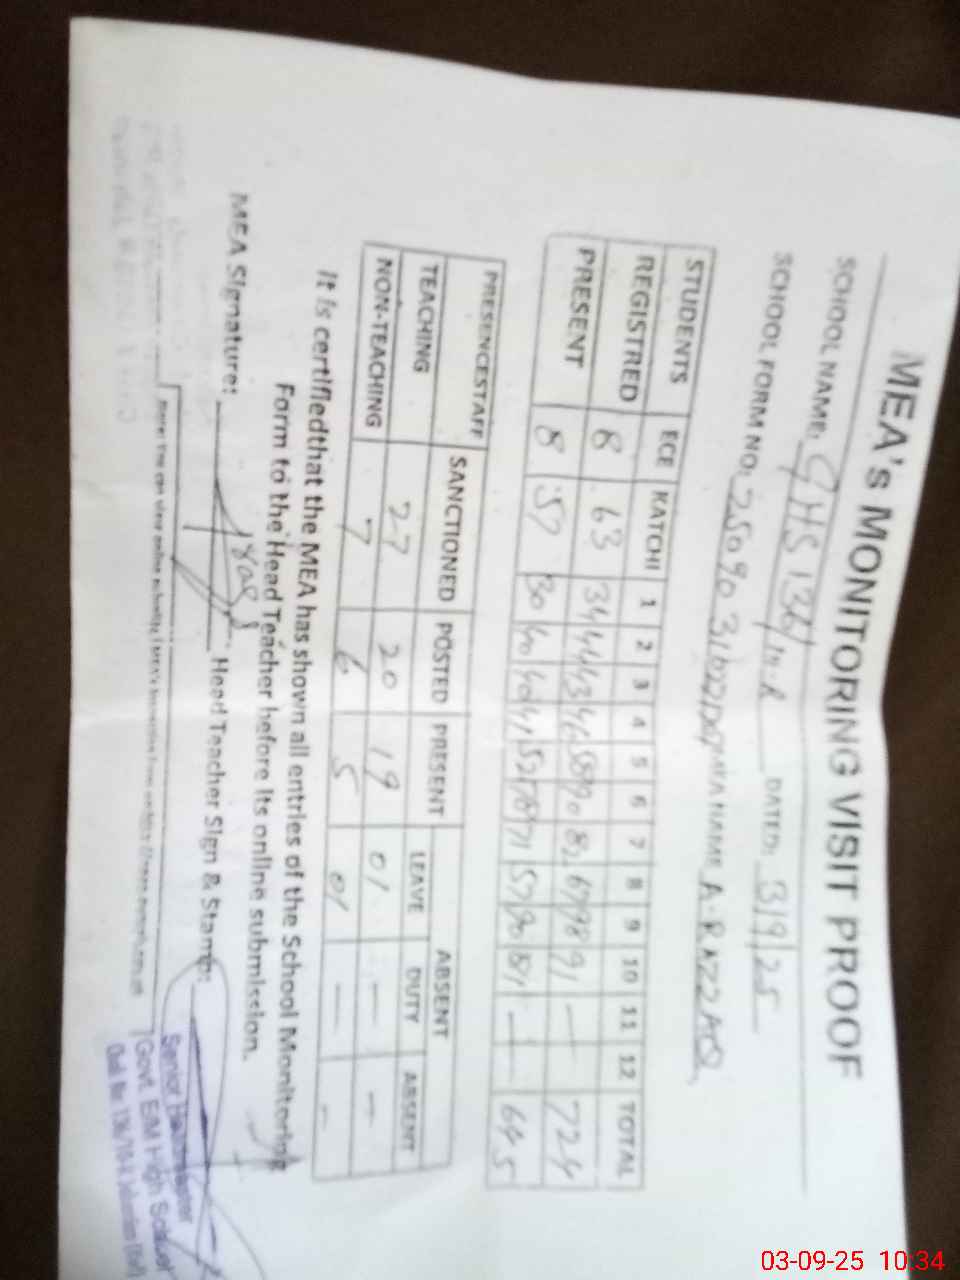 MEA's MONITORING VISIT PROOF
SCHOOL NAME: GHS 136/10-R DATED: 3/9/25
SCHOOL FORM NO: NAME A-RAZZAQ
STUDENTS ECE KATCHI 1 2 3 4 5 6 7 8 9 10 11 12 TOTAL
REGISTRED 8 63 34 44 43 46 58 90 82 67 98 91 — — 724
PRESENT 8 57 30 40 40 41 52 78 71 57 90 81 — — 645
PRESENCESTAFF SANCTIONED POSTED PRESENT ABSENT
LEAVE DUTY ABSENT
TEACHING 27 20 19 01 — —
NON-TEACHING 7 6 5 01 — —
It is certifiedthat the MEA has shown all entries of the School Monitoring
Form to the Head Teacher before its online submission.
MEA Signature: Head Teacher Sign & Stamp:
Senior Headmaster
Govt. E/M High School
Note: You can view online
03-09-25 10:34